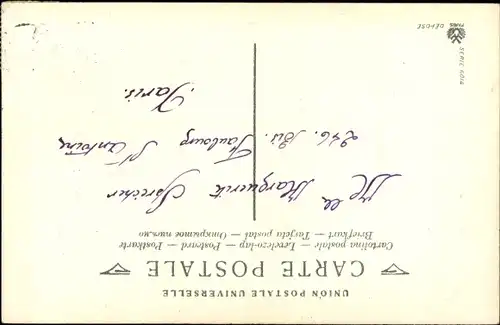 UNION POSTALE UNIVERSELLE
CARTE POSTALE
Cartolina postale — Levelezo-lap — Postcard — Postkarte
Briefkart — Tarjeta postal — Открытое письмо
Mlle Marguerite Sprecher
246. bis. Faubourg St Antoine
Paris.
SERIE 6012
PARIS
DÉPOSÉ